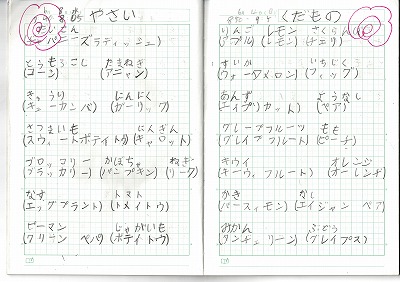 やさい
(ャパニーズラディッシュ)
とうもろこし たまねぎ
(コーン) (アニャン)
きゅうり にんにく
(キューカンバ) (ガーリック)
さつまいも にんぎん
(スウィートポテイトウ) (キャロット)
ブロッコリー かぼちゃ ねぎ
(ブラッカリー) (パンプキン) (リーク)
なす トマト
(エッグプラント) (トメイトウ)
ピーマン じゃがいも
(グリーン ペパ) (ポテイトウ)
くだもの
りんご レモン さくらんぼ
(アプル) (レモン) (チェリ)
すいか いちじく
(ウォータメロン) (フィッグ)
あんず ようなし
(エイプリカット) (ペア)
グレープフルーツ もも
(グレイプフルート) (ピーチ)
キウイ オレンジ
(キーウィフルート) (オーレンヂ)
かき なし
(パースィモン) (エイジャン ペア)
みかん ぶどう
(タンヂェリーン) (グレイプス)